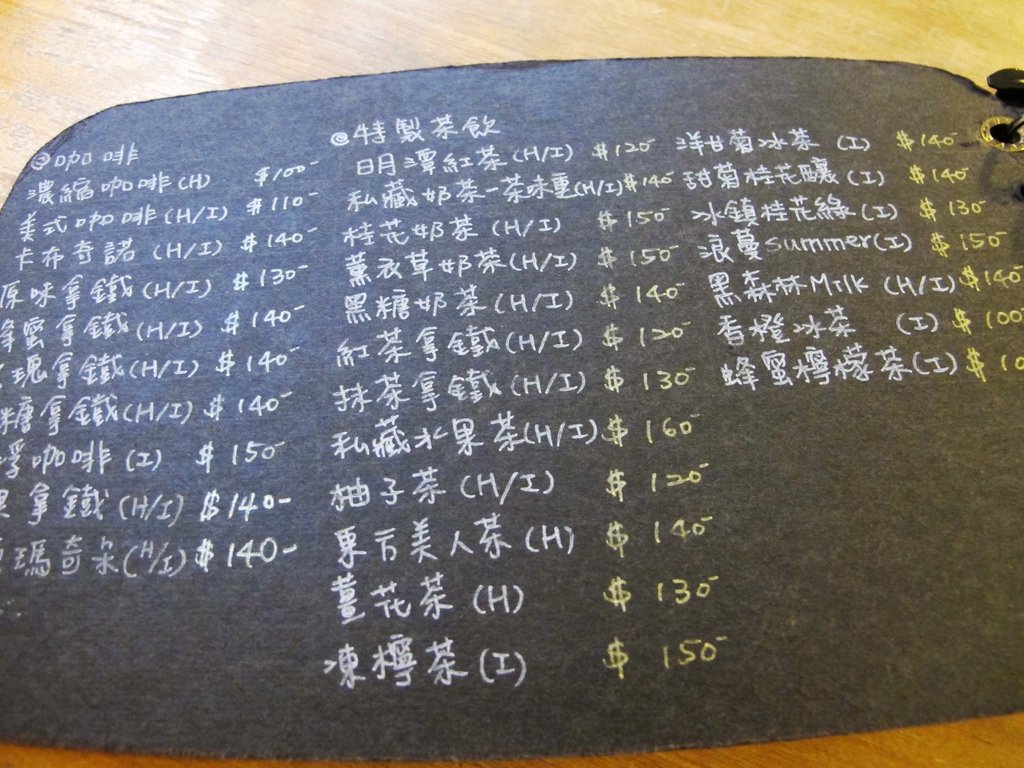 @咖啡
濃縮咖啡(H) $100-
美式咖啡(H/I) $110-
卡布奇諾(H/I) $140-
原味拿鐵(H/I) $130-
蜂蜜拿鐵(H/I) $140-
瑰拿鐵(H/I) $140-
糖拿鐵(H/I) $140-
浮咖啡(I) $150-
果拿鐵(H/I) $140-
瑪奇朵(H/I) $140-
@特製茶飲
日月潭紅茶(H/I) $120-
私藏奶茶-茶味重(H/I) $140-
桂花奶茶(H/I) $150-
薰衣草奶茶(H/I) $150-
黑糖奶茶(H/I) $140-
紅茶拿鐵(H/I) $120-
抹茶拿鐵(H/I) $130-
私藏水果茶(H/I) $160-
柚子茶(H/I) $120-
東方美人茶(H) $140-
薑花茶(H) $130-
凍檸茶(I) $150-
洋甘菊冰茶(I) $140-
甜菊桂花釀(I) $140-
冰鎮桂花綠(I) $130-
浪蔓summer(I) $150-
黑森林Milk(H/I) $140-
香橙冰茶(I) $100
蜂蜜檸檬茶(I) $10